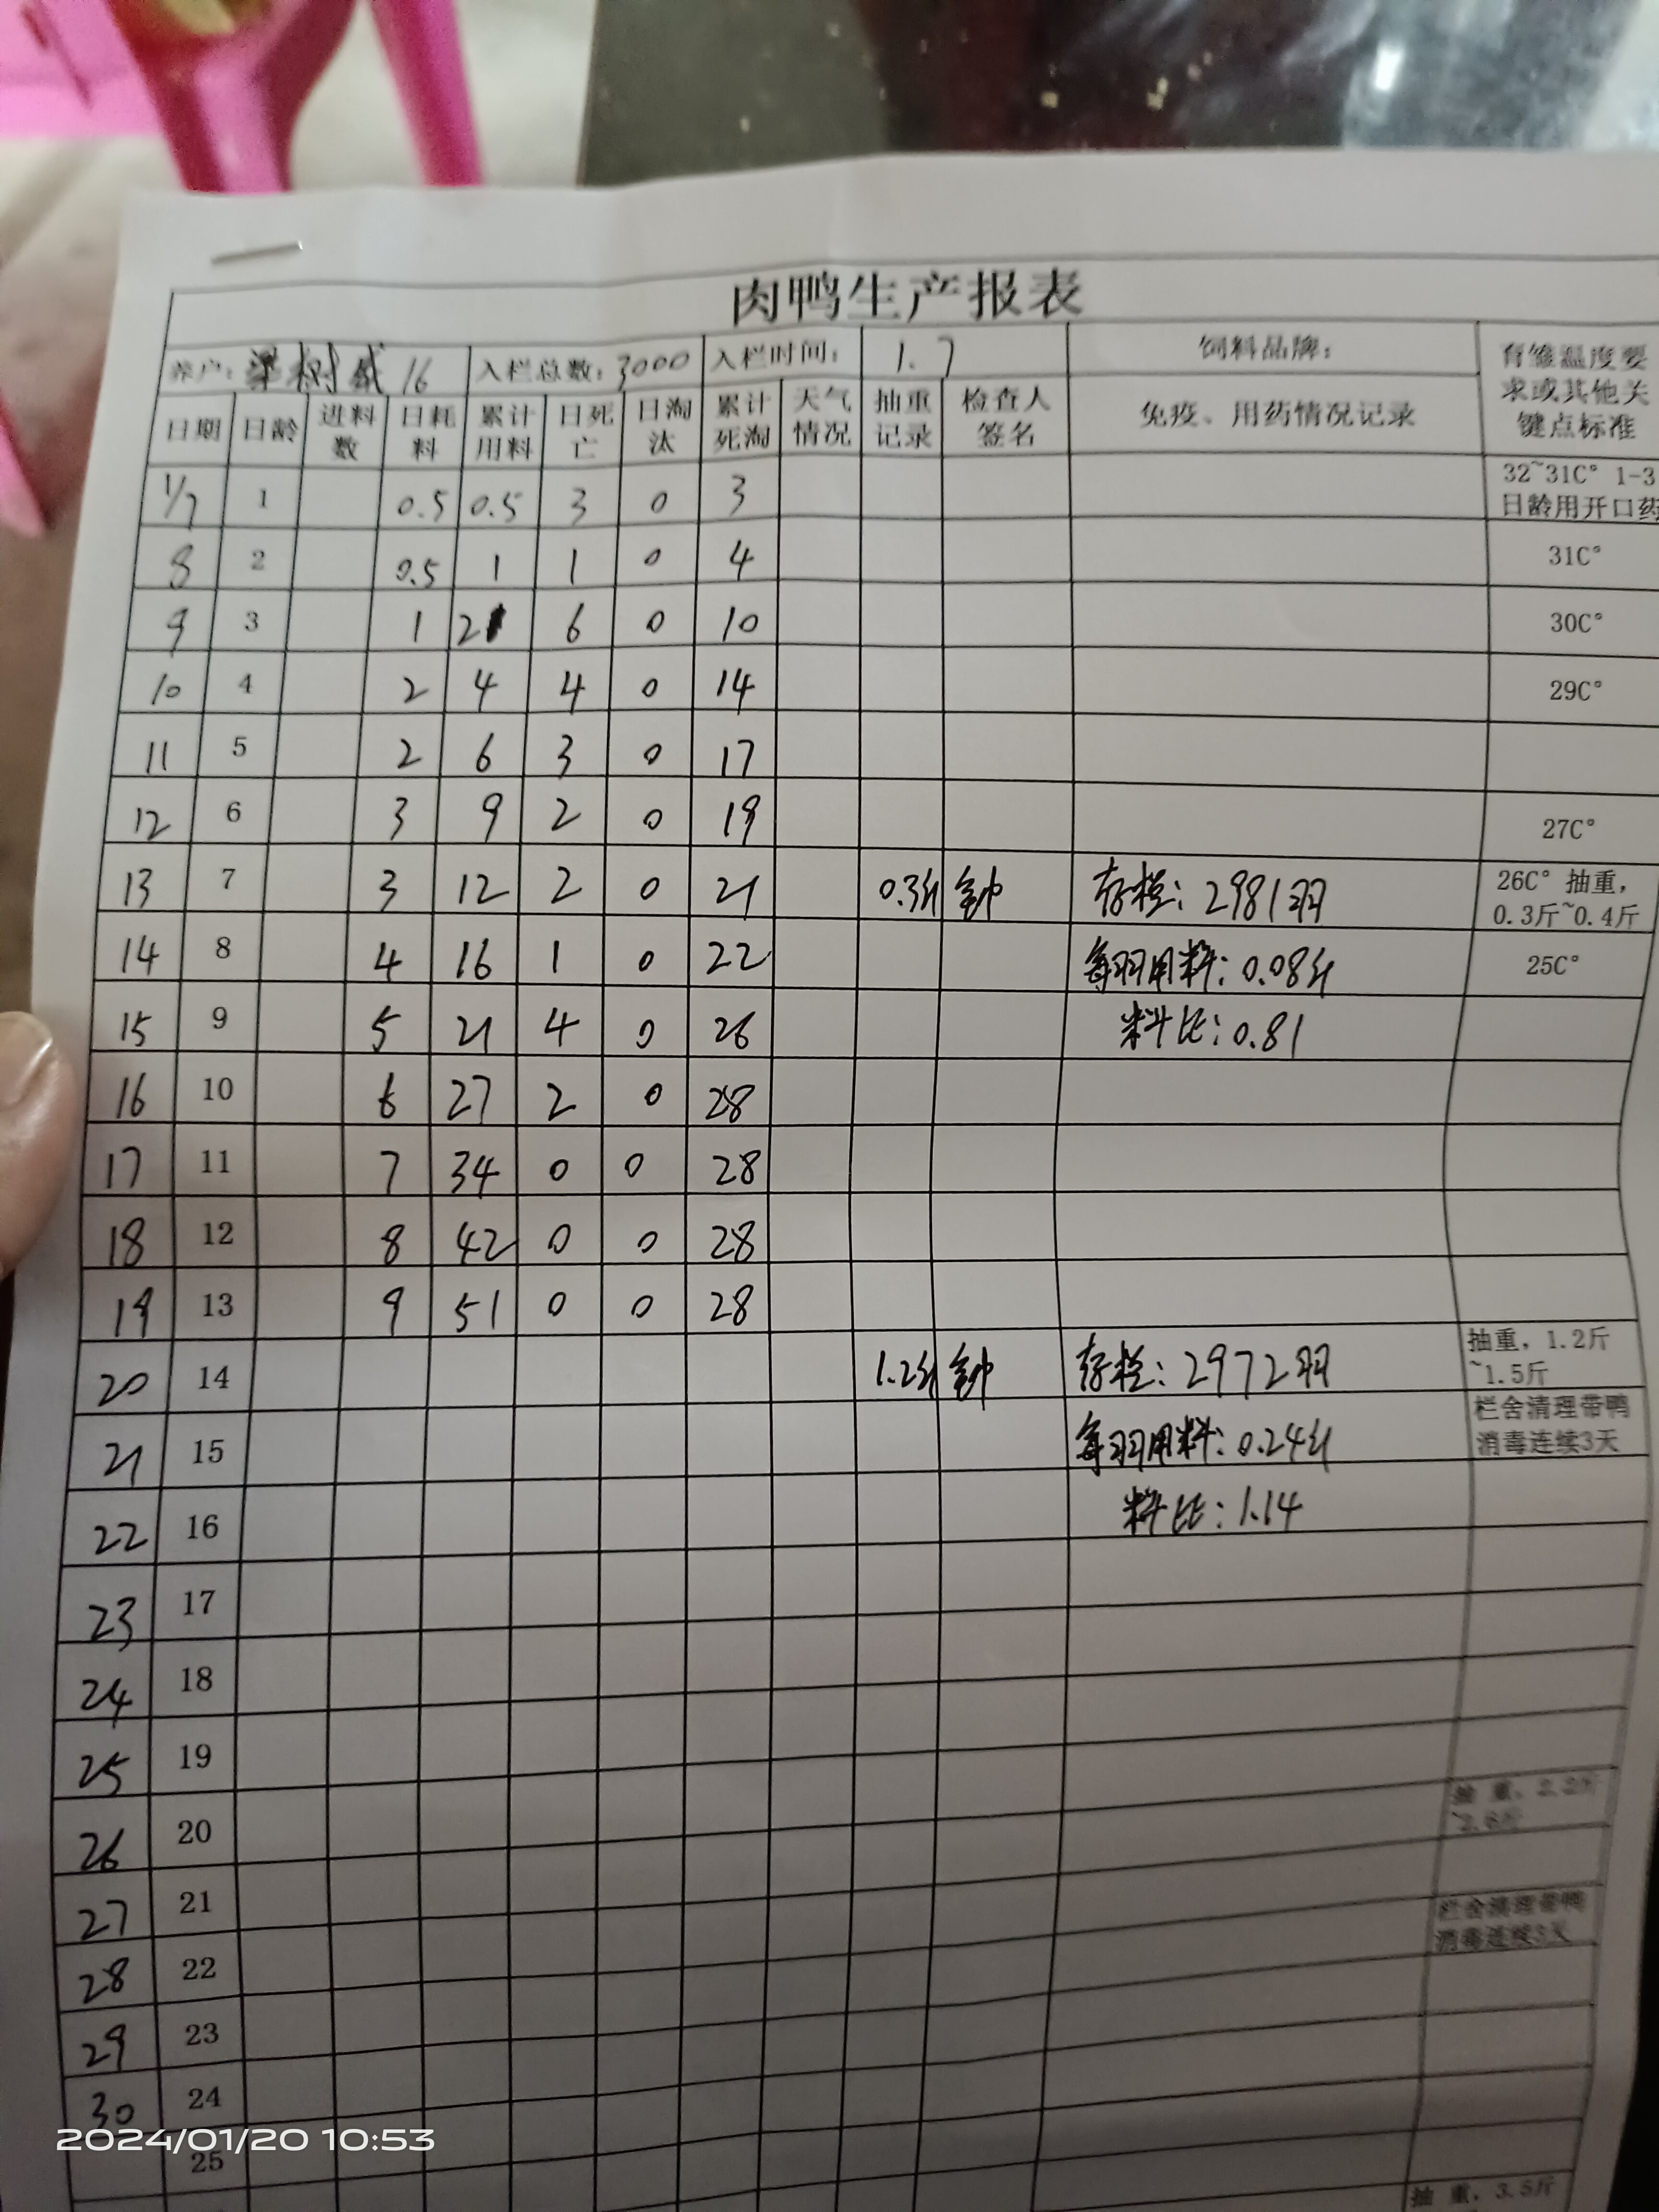 肉鸭生产报表
养户: 梁树威 16 入栏总数: 3000 入栏时间: 1.7 饲料品牌: 育雏温度要求或其他关键点标准
日期 日龄 进料数 日耗料 累计用料 日死亡 日淘汰 累计死淘 天气情况 抽重记录 检查人签名 免疫、用药情况记录
1/7 1 0.5 0.5 3 0 3 32~31C° 1-3日龄用开口药
8 2 0.5 1 1 0 4 31C°
9 3 1 2 6 0 10 30C°
10 4 2 4 4 0 14 29C°
11 5 2 6 3 0 17
12 6 3 9 2 0 19 27C°
13 7 3 12 2 0 21 0.3斤 钟 存栏: 2981羽 26C° 抽重, 0.3斤~0.4斤
14 8 4 16 1 0 22 每羽用料: 0.08斤 25C°
15 9 5 21 4 0 26 料比: 0.81
16 10 6 27 2 0 28
17 11 7 34 0 0 28
18 12 8 42 0 0 28
19 13 9 51 0 0 28
20 14 1.2斤 钟 存栏: 2972羽 抽重, 1.2斤~1.5斤
21 15 每羽用料: 0.24斤 栏舍清理带鸭消毒连续3天
22 16 料比: 1.14
23 17
24 18
25 19
26 20 抽 重, 2.2斤
27 21
28 22 栏舍清理带鸭消毒连续3天
29 23
30 24
25
抽 重, 3.5斤
2024/01/20 10:53